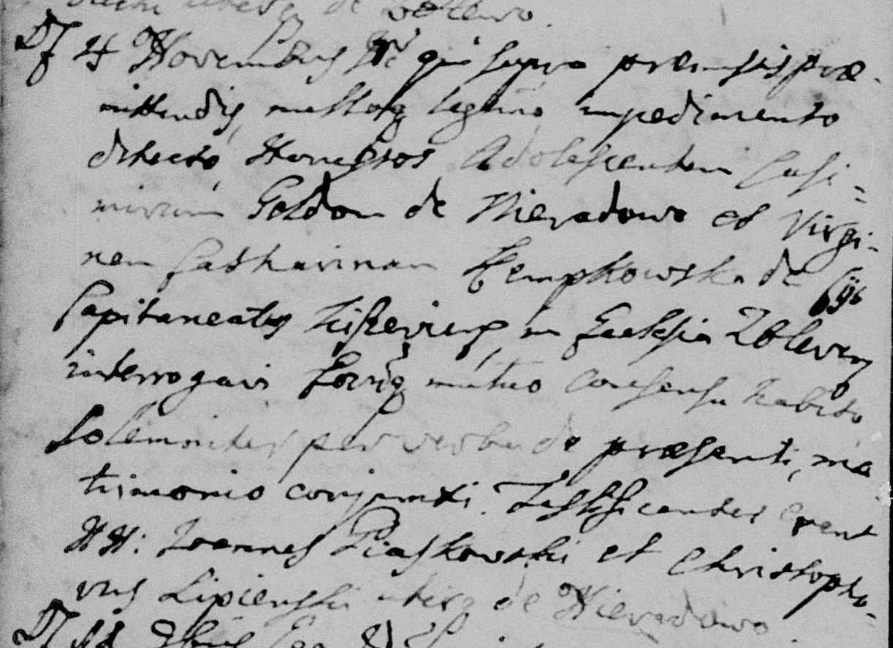 de
D 4 Novembris Idem qui supra præmissis præ-
mittendis, nulloq legitimo impedimento
detecto, Honestos Adolescentem Casi=
mirum Goldon de Nieradowo et Virgi-
nem Catharinam Kempkowska de
Capitaneatus in Ecclesia Zblevien
interrogavi Eorūq mutuo consensu habito
Solemniter per verba de præsenti, ma
trimonio conjunxi. Testificantes erant
HH: Joannes Piaskowski et Christopho-
rus Lipienski uterq de Nieradowo.
D